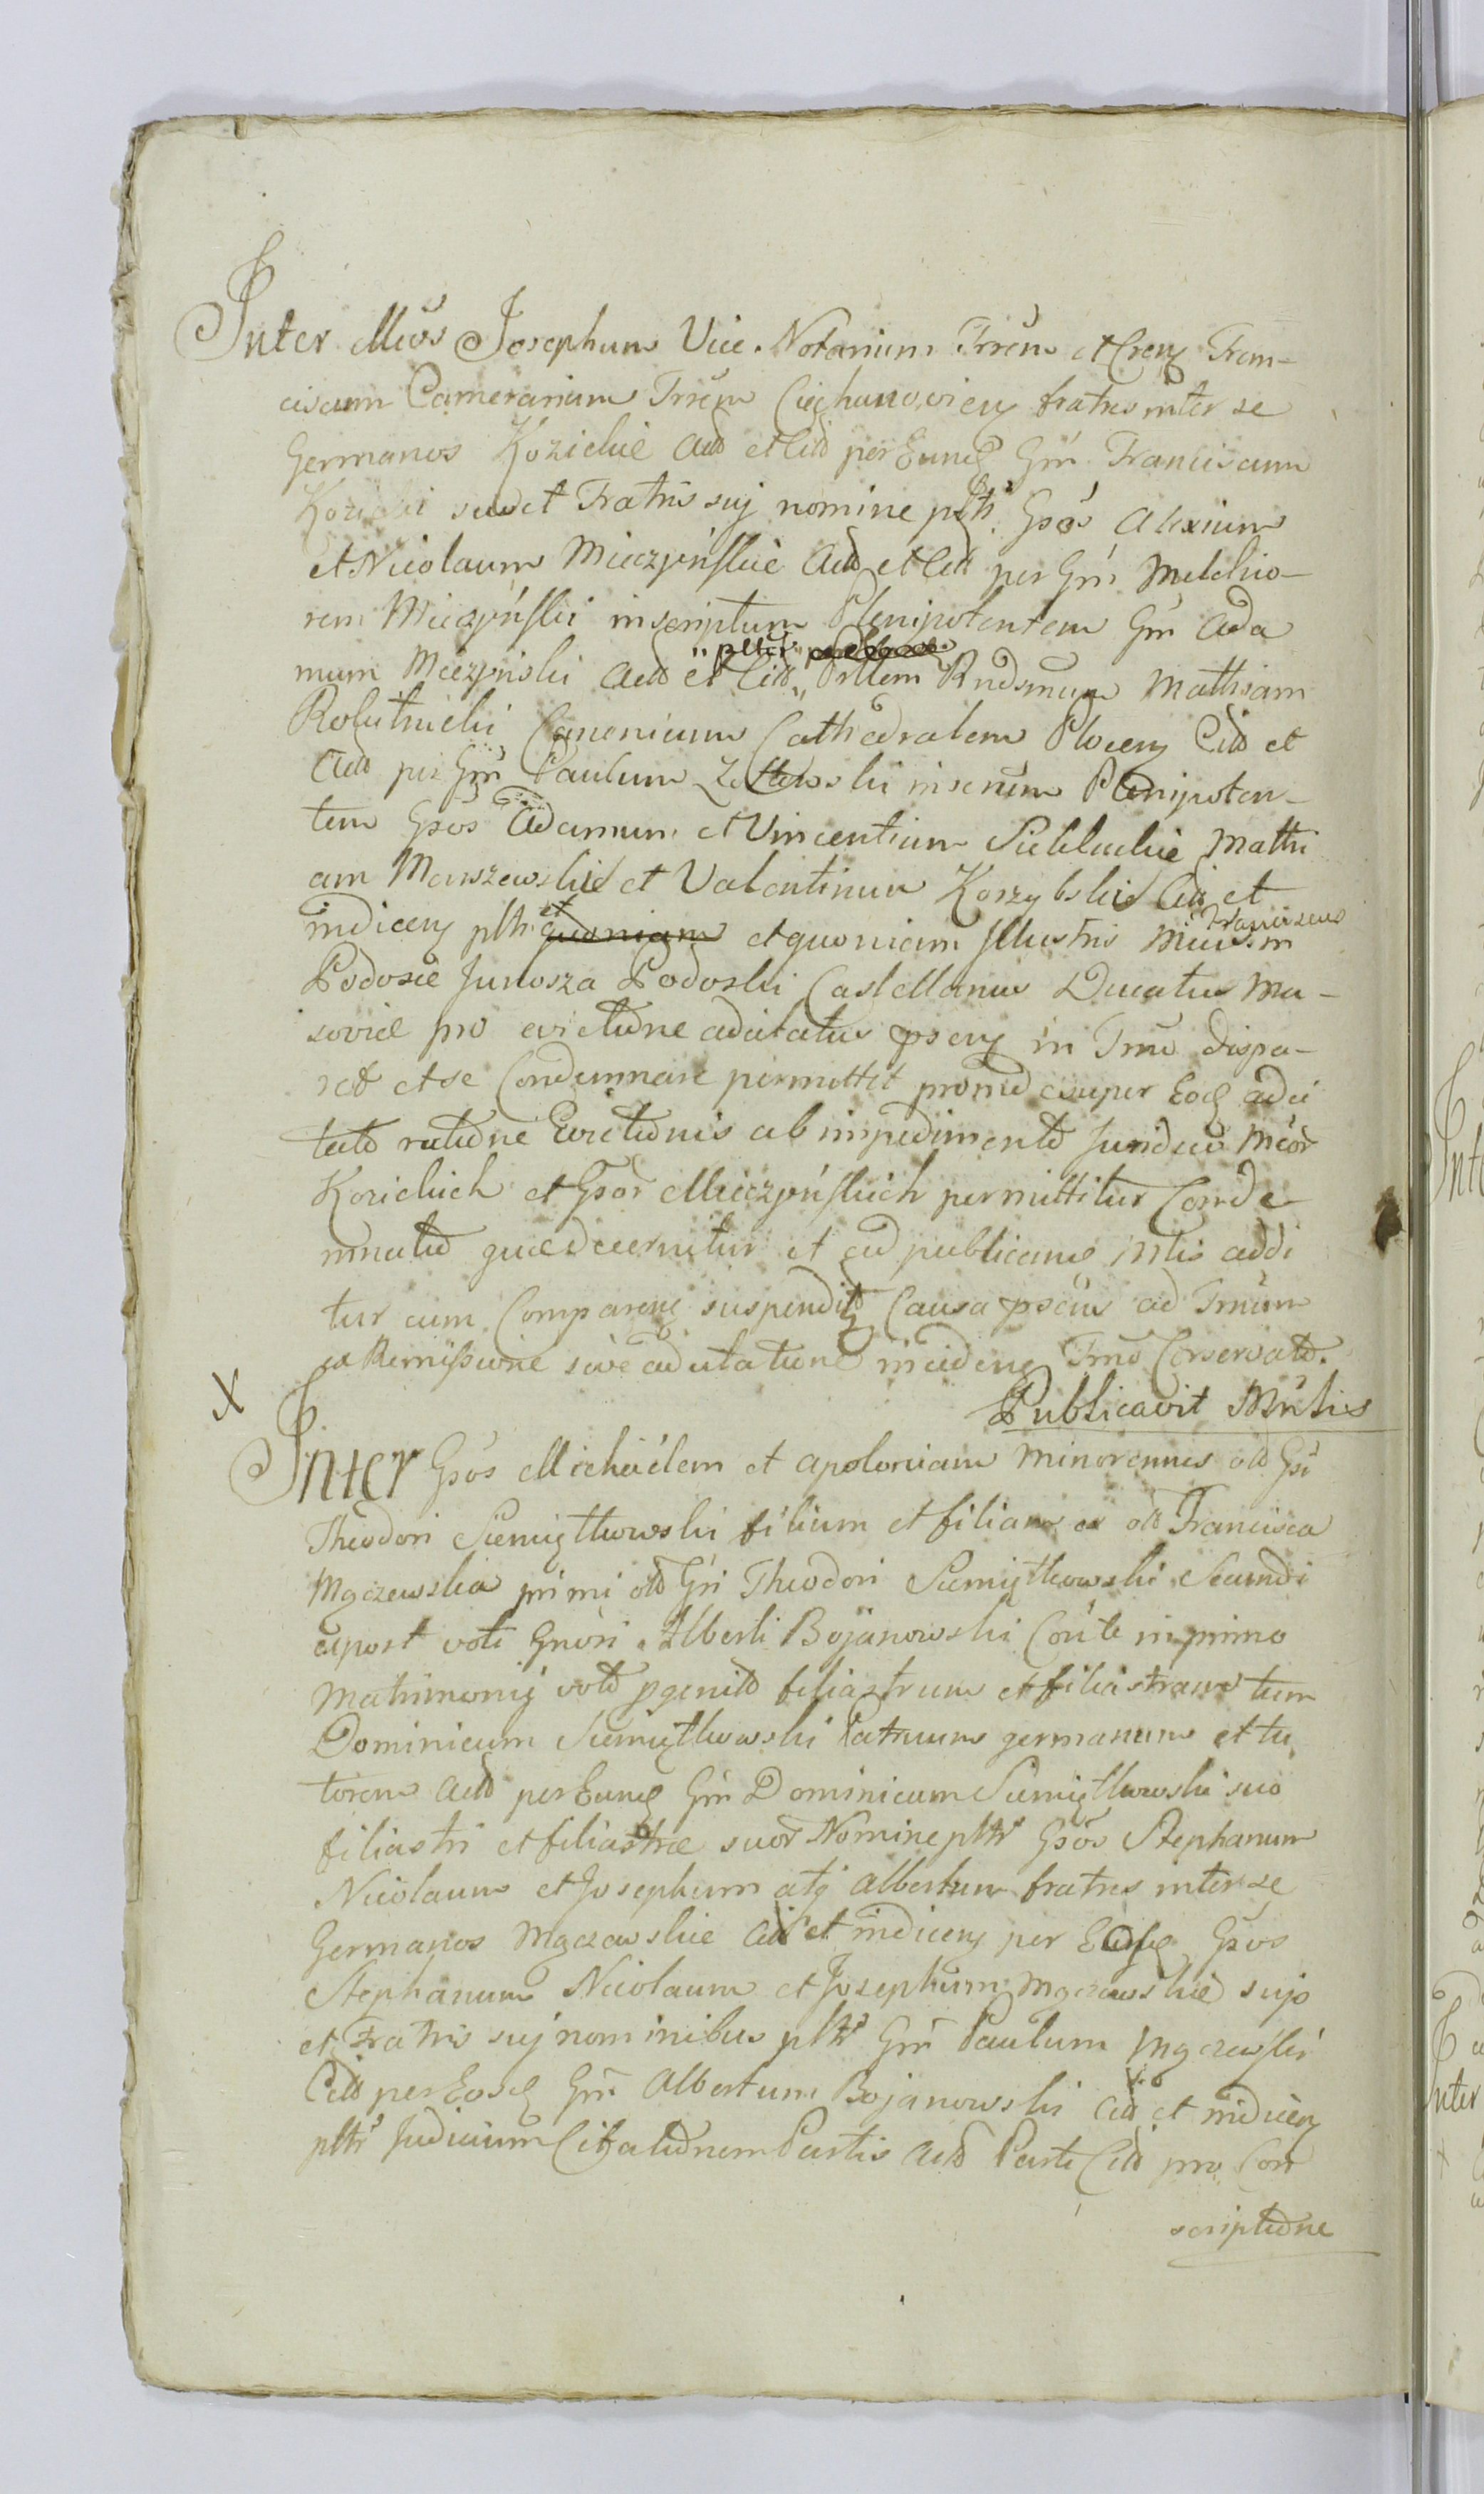 Inter Mcos Josephum Vice-Notarium Trrem et Cren Fran-
ciscum Camerarium Trrem Ciechanovien fratres inter se
Germanos Kozickie Actt et Citt per Eund Gm Franciscum
Kozicki suo et Fratris suj nomine pltr Gsos Alexium
et Nicolaum Mieczyńskie Actt et Citt per Gm Melchio-
rem Mieczyński inscriptum Plenipotentem Gm Ada
mum Mieczyński Actt et Citt „pltr" Prllem Rndsmum Mathiam
Rolutnicki Canonicum Cathedralem Plocen Citt et
Actt per Gm Paulum inserum Plenipoten-
tem Gsos Adamum et Vincentium Siekluckie Matthi
am Marszewskie et Valentinum Korzybskie Citt et
indicen pltr et quoniam et quoniam Illustris Mcus Franciscus in
Podosie Junosza Podoski Castellanus Ducatus Ma-
soviæ pro evictione adcitatus psen in Tmo dispa-
ret et se Condemnare permittet proinde super Eod adci
tato ratione Evictionis ab impedimento Juridico Mcor
Kozickich et Gsor Mieczyńskich permittitur Conde
mnatio quæ decernitur et ad publicans Mtis addi
tur cum Comparen suspenditq Causa pscius ad Tmum
ex Remissione sive adcitatione inciden Tmo Conservato.
Publicavit Mrlis
X
Inter Gsos Michaélem et Apoloniam Minorennes olt Gsi
Theodori Siemiątkowski filium et filiam ex olt Francisca
Mączewska primi olt Gsi Theodori Siemiątkowski Secundi
expost voti Gnosi Alberti Bojanowski Conte in primo
Matrimonij voto pgenito filiastrum et filiastram tum
Dominicum Siemiątkowski Patruum germanum et tu
torem Actt per Eund Gm Dominicum Siemiątkowski suo
filiastri et filiastræ suor Nomine pltr Gsos Stephanum
Nicolaum et Josephum atq Albertum fratres inter se
Germanos Mączewskie Citt et indicen per Eosd Gsos
Stephanum Nicolaum et Josephum Mączewskie sujs
et Fratris suj nominibus pltr Gm Paulum Mączewski
Citt per Eosd Gm Albertum Bojanowski Citt et indicen
pltr Judicium Citationem Partis Actt Parti Citt pro Con
scriptione